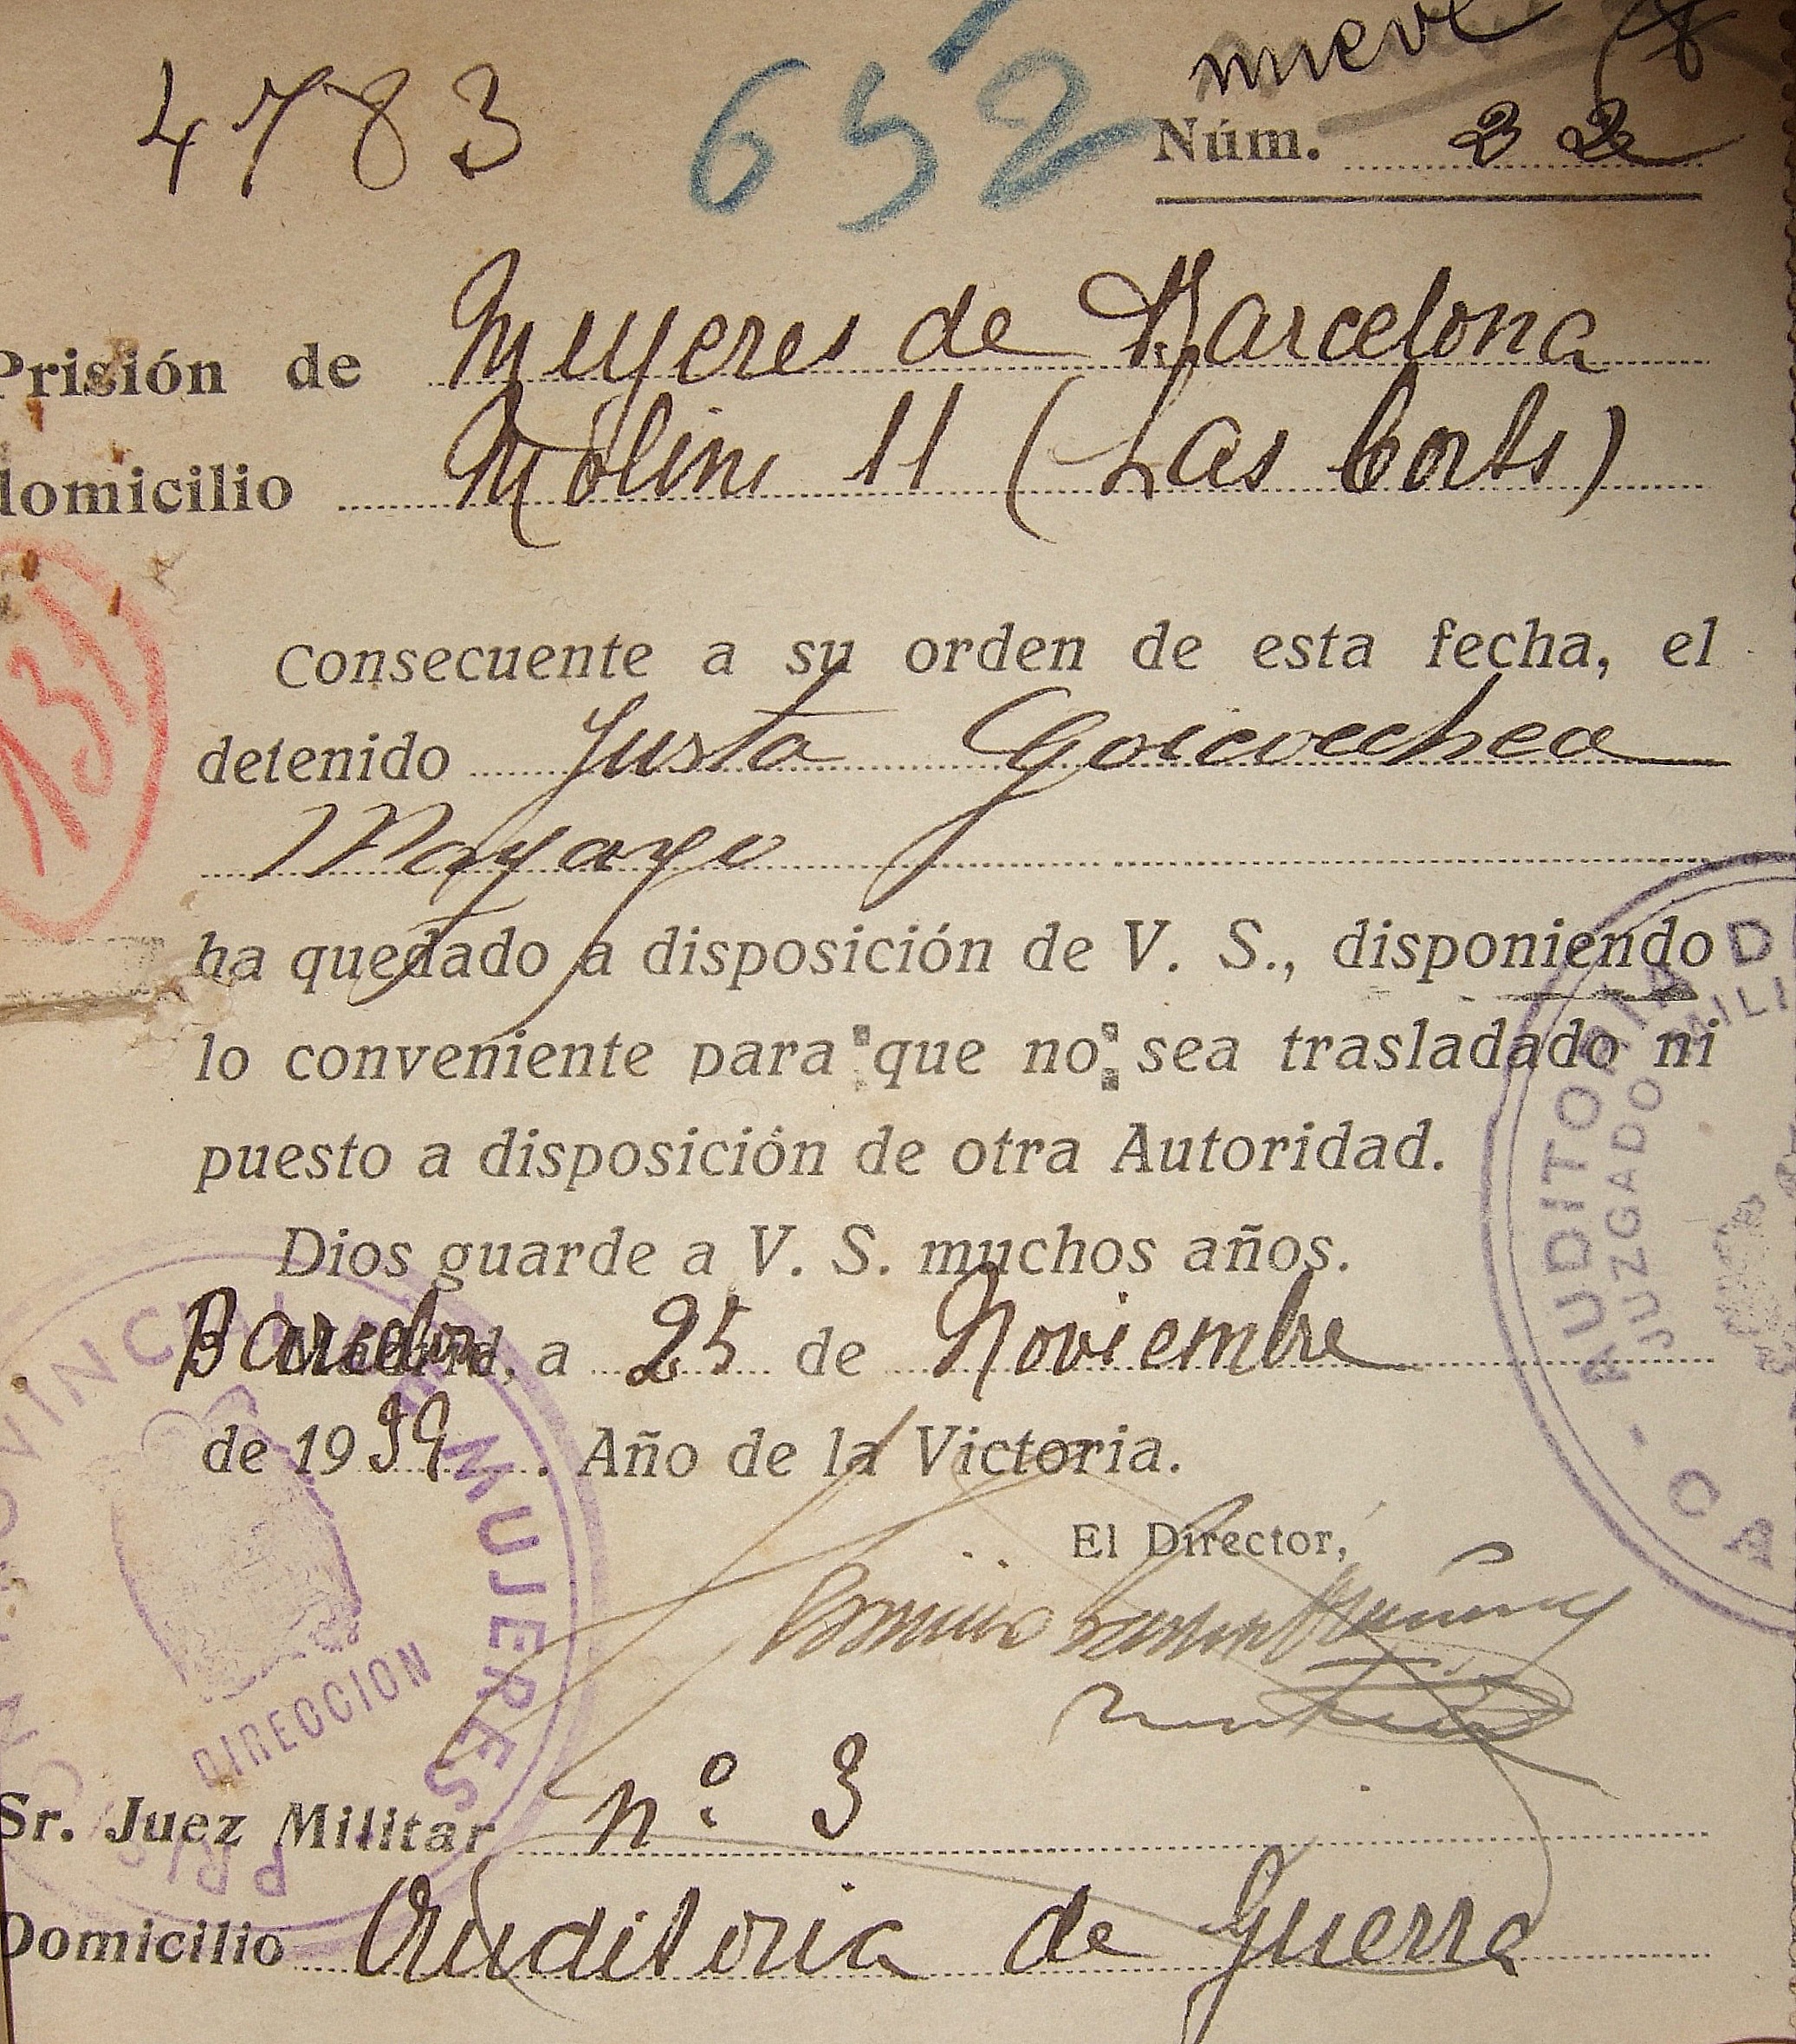 nueve
4783 652 Núm. 32
Prisión de Mujeres de Barcelona
domicilio Molins 11 (Las Corts)
131
Consecuente a su orden de esta fecha, el
detenido Justa Goicoechea
Mayayo
ha quedado a disposición de V. S., disponiendo
lo conveniente para que no sea trasladado ni
puesto a disposición de otra Autoridad.
Dios guarde a V. S. muchos años.
Barcelona, a 25 de Noviembre
de 1939. Año de la Victoria.
El Director,
Sr. Juez Militar nº 3
Domicilio Auditoria de Guerra
AUDITORIA D
JUZGADO MILI
DE MUJERES
DIRECCION